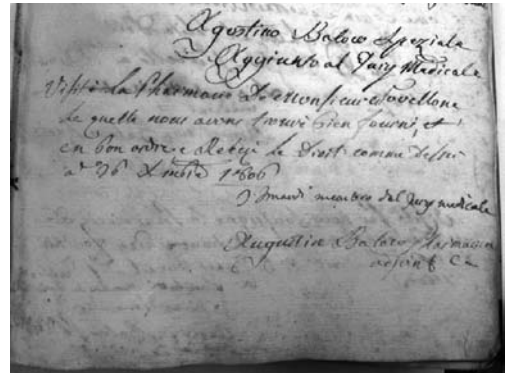 Agostino Baloco Speziale
Aggiunto al Jury Medicale
Visité la Pharmacie De Monsieur
la quelle nous avons trouvé bien fourni, et
en bon ordre e le Droit comme
1806
membro del Jury medicale
Augustin Baloco Pharmacien